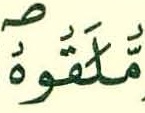 مُّلَٰقُوهُۖ